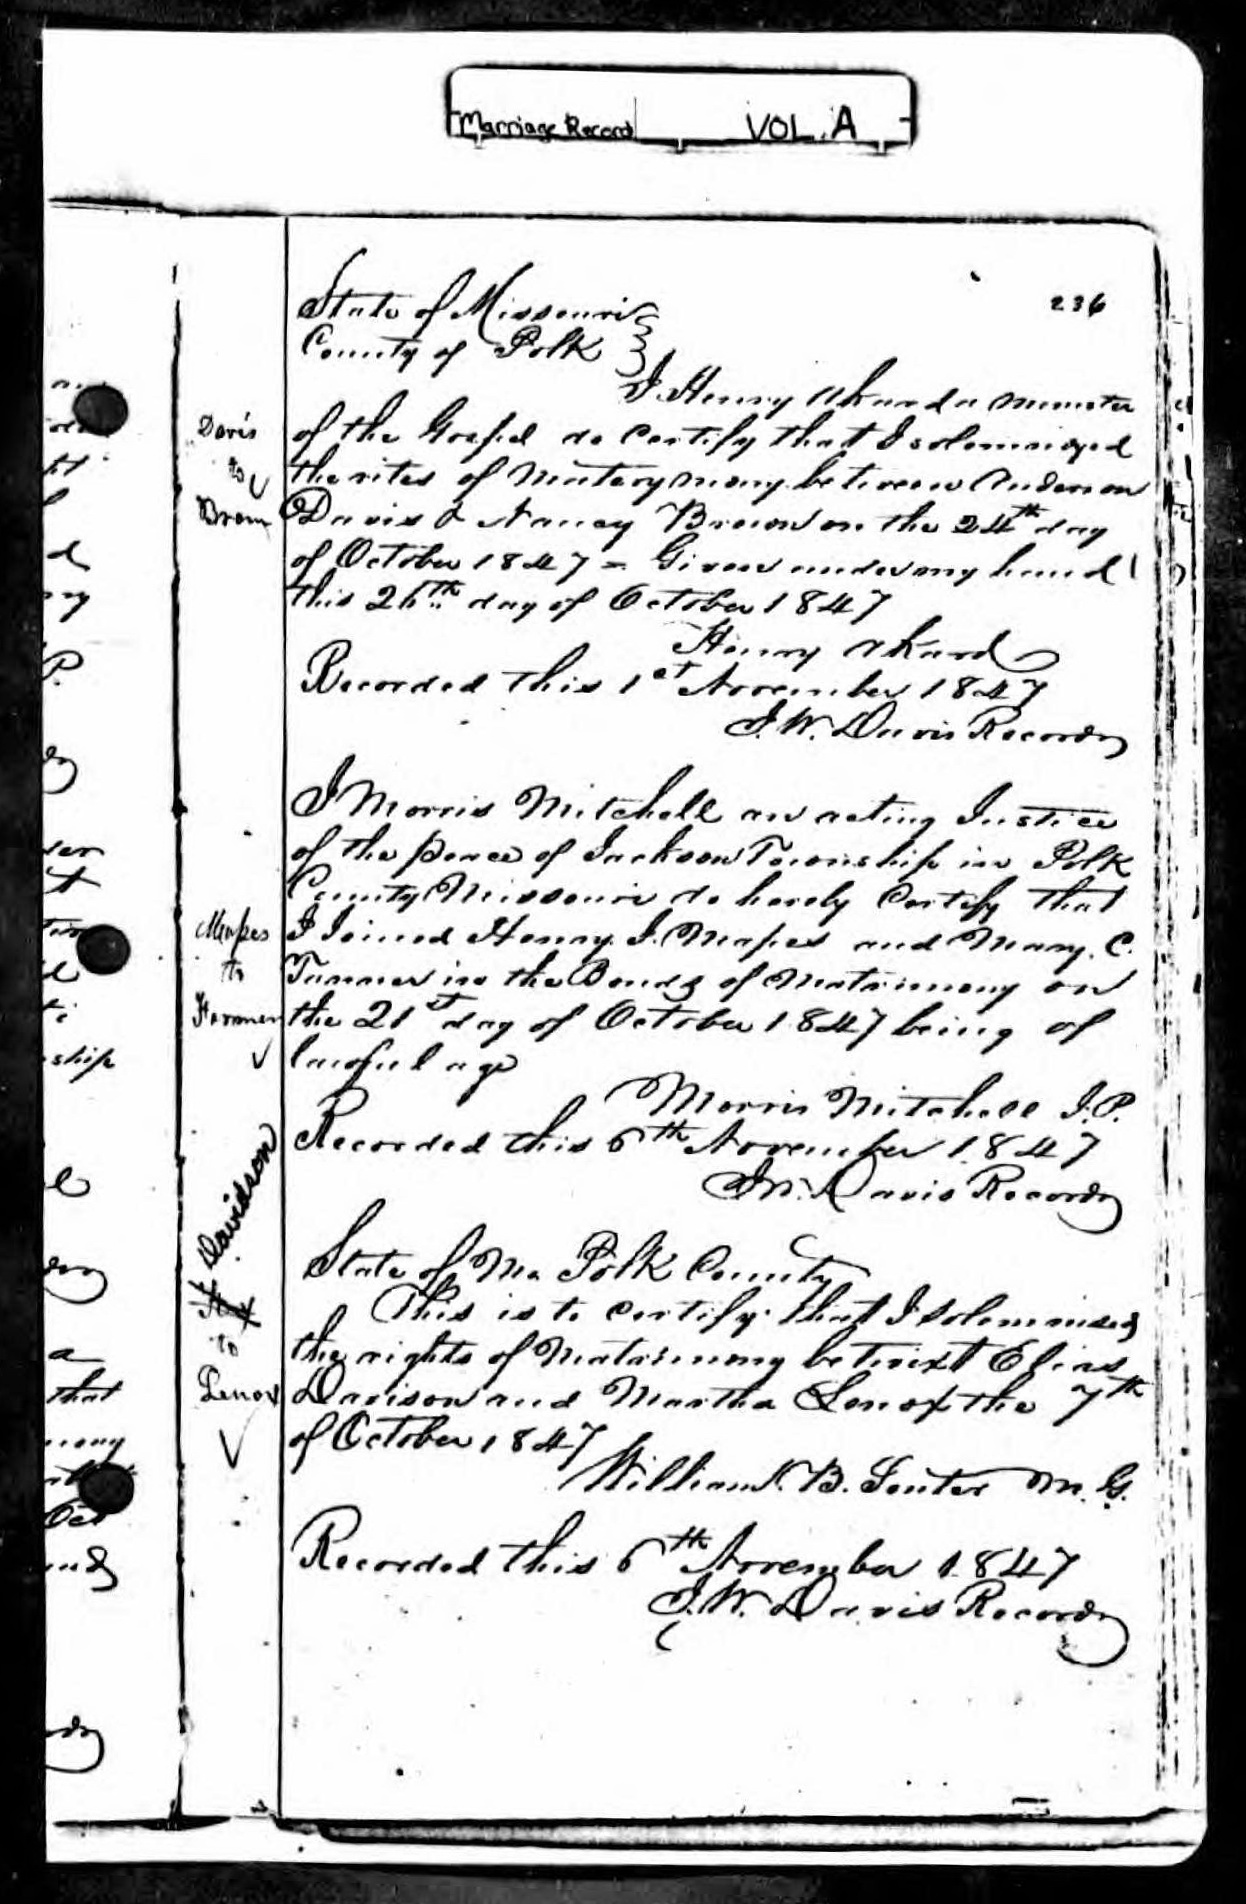 Marriage Record VOL. A
236
State of Missouri
County of Polk
I Henry Akard a Minister
of the Gospel do Certify that I solemnized
the rites of Matrymony between Anderson
Davis & Nancy Brown on the 24th day
of October 1847 = Given under my hand
this 26th day of October 1847
Henry Akard
Recorded this 1st November 1847
J. W. Davis Recorder
Davis
to
Brown
I Morris Mitchell an acting Justice
of the peace of Jackson Township in Polk
County Missouri do hereby Certify that
I Joined Henry J. Mapes and Mary C.
in the Bonds of Matrimony on
the 21st day of October 1847 being of
lawful age
Morris Mitchell J.P.
Recorded this 6th November 1847
J. W. Davis Recorder
Mapes
to
State of Mo Polk County
This is to certify that I solemnised
the rights of Matrimony betwixt Elias
Davison and Martha Lenox the 7th
of October 1847
William B. Senter M. G.
Recorded this 6th November 1847
J. W. Davis Recorder
Davidson
to
Lenox
ship
that
Oct